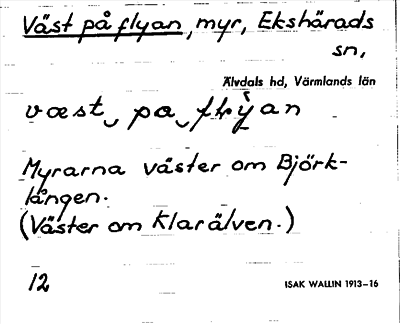 Väst på flyan, myr, Ekshärads
sn,
Älvdals hd, Värmlands län
væst‿pa‿flyan
Myrarna väster om Björk-
lången.
(Väster om Klarälven.)
12
ISAK WALLIN 1913–16